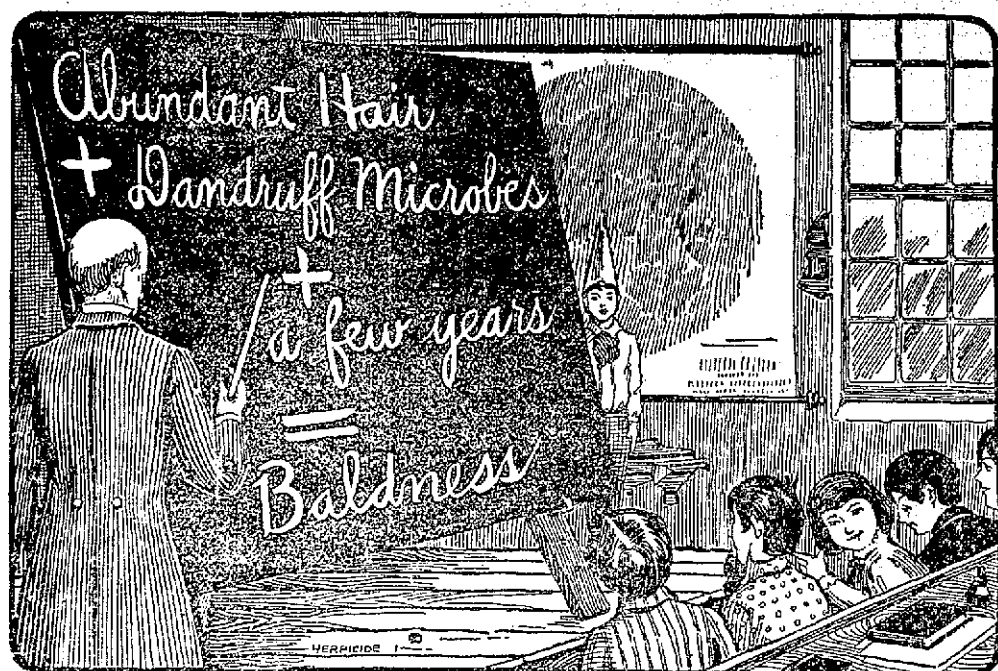 Abundant Hair
+ Dandruff Microbes
+
a few years
=
Baldness
HERPICIDE 1